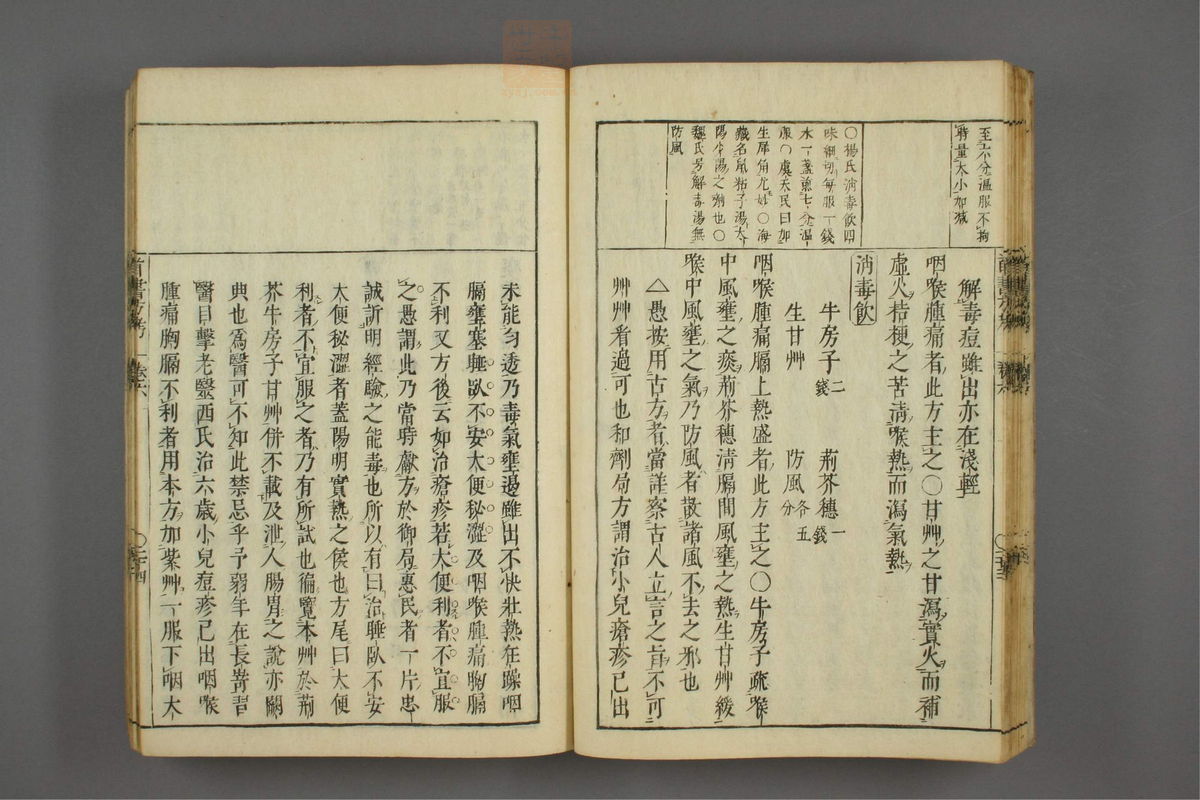 至六分温服不拘
時量大小加減
○楊氏消毒飲四
味細切每服一錢
水一盞煎七分温
服○虞天民曰加
生犀角尤妙○海
藏名鼠粘子湯太
陽少陽之劑也○
魏氏号解毒湯無
防風
解毒痘雖出亦在淺輕
咽喉腫痛者此方主之○甘艸之甘瀉實火而補
虛火桔梗之苦清喉熱而瀉氣熱
消毒飲
牛房子二錢 荊芥穗一錢
生甘艸 防風各五分
咽喉腫痛膈上熱盛者此方主之○牛房子疏喉
中風壅之痰荊芥穗清膈間風壅之熱生甘艸緩
喉中風壅之氣乃防風者散諸風不去之邪也
△愚按用古方者當詳察古人立言之旨不可
艸艸看過可也和劑局方謂治小兒瘡疹已出
未能匀透乃毒氣壅遏雖出不快壯熱狂躁咽
膈壅塞睡臥不安大便秘澀及咽喉腫痛胸膈
不利又方後云如治瘡疹若大便利者不宜服
之愚謂此乃當時獻方於御局惠民者一片忠
誠訢明經驗之能毒也所以有曰治睡臥不安
大便秘澀者蓋陽明實熱之候也方尾曰大便
利者不宜服之者乃有所試也徧覽本艸於荊
芥牛房子甘艸併不載及泄人腸胃之說亦闕
典也爲醫可不知此禁忌乎予弱年在長嵜昔
醫目擊老醫西氏治六歲小兒痘疹已出咽喉
腫痛胸膈不利者用本方加紫艸一服下咽大